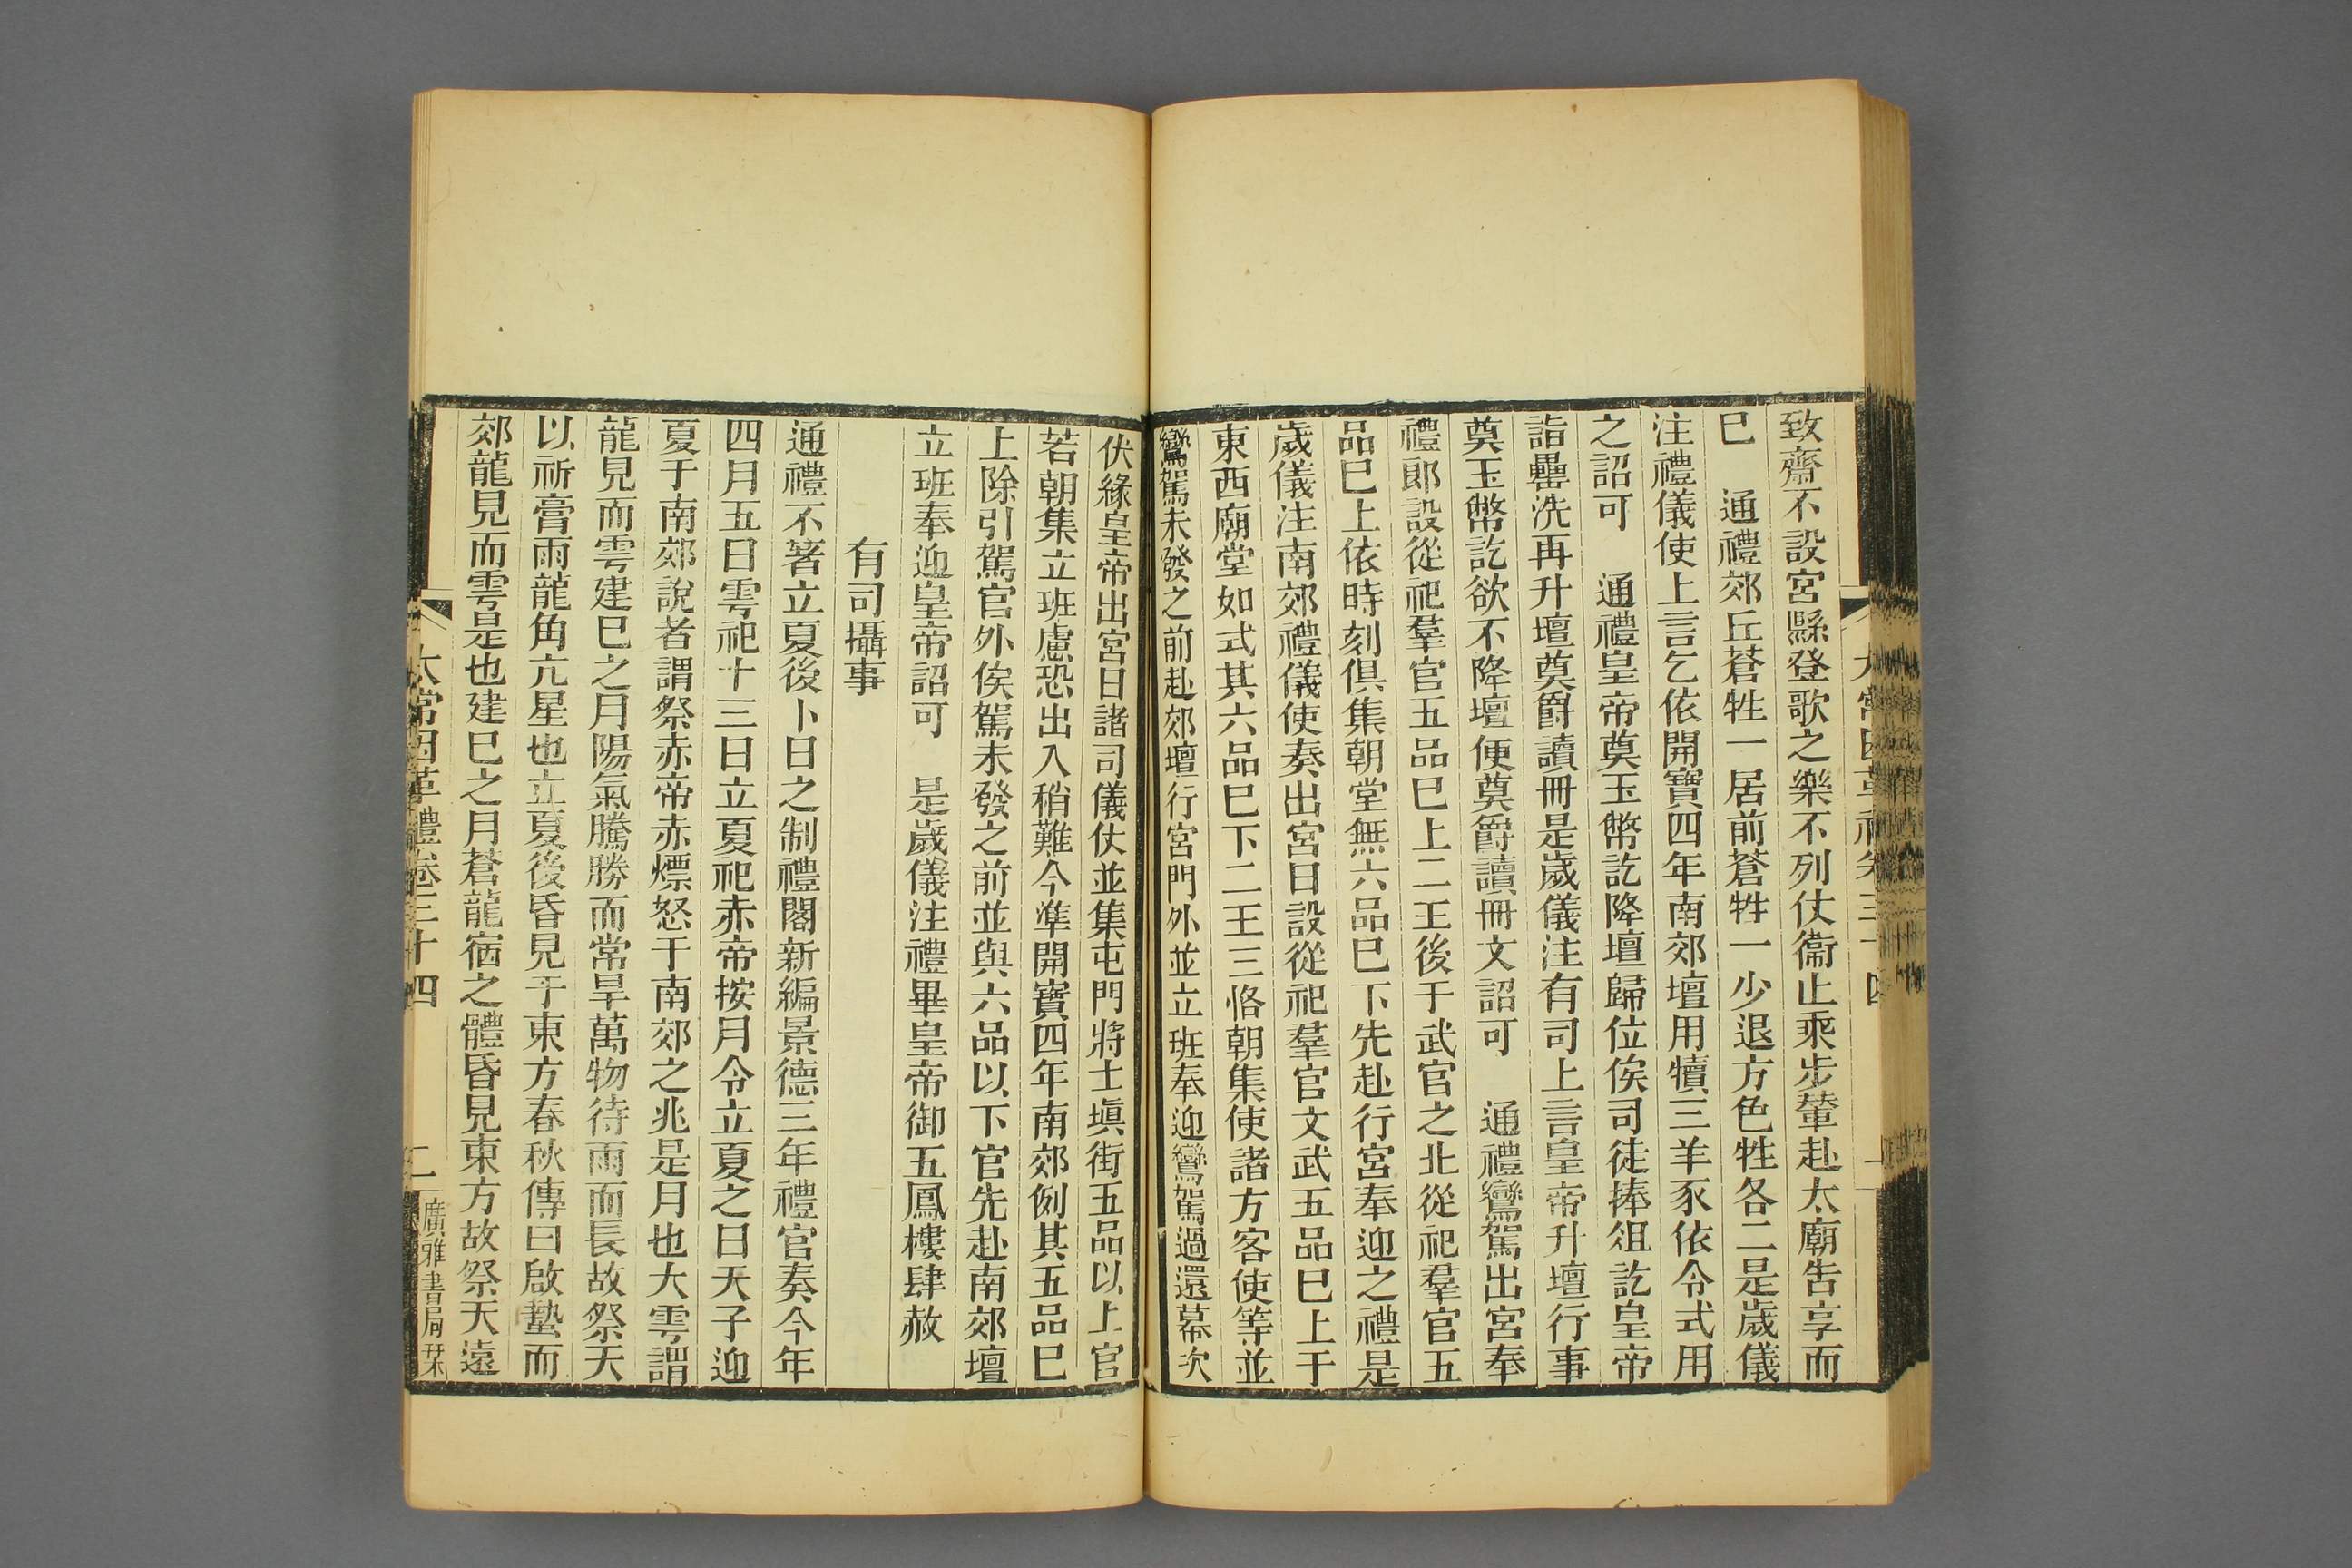 致齋不設宮縣登歌之樂不列仗衞止乘步輦赴太廟告享而
巳　通禮郊丘蒼牲一居前蒼牲一少退方色牲各二是歲儀
注禮儀使上言乞依開寶四年南郊壇用犢三羊豕依令式用
之詔可　通禮皇帝奠玉幣訖降壇歸位俟司徒捧俎訖皇帝
詣罍洗再升壇奠爵讀冊是歲儀注有司上言皇帝升壇行事
奠玉幣訖欲不降壇便奠爵讀冊文詔可　通禮鸞駕出宮奉
禮郎設從祀羣官五品巳上二王後于武官之北從祀羣官五
品巳上依時刻俱集朝堂無六品巳下先赴行宮奉迎之禮是
歲儀注南郊禮儀使奏出宮日設從祀羣官文武五品巳上于
東西廟堂如式其六品巳下二王三恪朝集使諸方客使等並
鸞駕未發之前赴郊壇行宮門外並立班奉迎鸞駕過還幕次
伏緣皇帝出宮日諸司儀仗並集屯門將士塡街五品以上官
若朝集立班慮恐出入稍難今準開寶四年南郊例其五品巳
上除引駕官外俟駕未發之前並與六品以下官先赴南郊壇
立班奉迎皇帝詔可　是歲儀注禮畢皇帝御五鳳樓肆赦
有司攝事
通禮不著立夏後卜日之制禮閣新編景德三年禮官奏今年
四月五日雩祀十三日立夏祀赤帝按月令立夏之日天子迎
夏于南郊說者謂祭赤帝赤熛怒于南郊之兆是月也大雩謂
龍見而雩建巳之月陽氣騰勝而常旱萬物待雨而長故祭天
以祈膏雨龍角亢星也立夏後昏見于東方春秋傳曰啟蟄而
郊龍見而雩是也建巳之月蒼龍宿之體昏見東方故祭天遠
太常因革禮卷三十四
二
廣雅書局栞